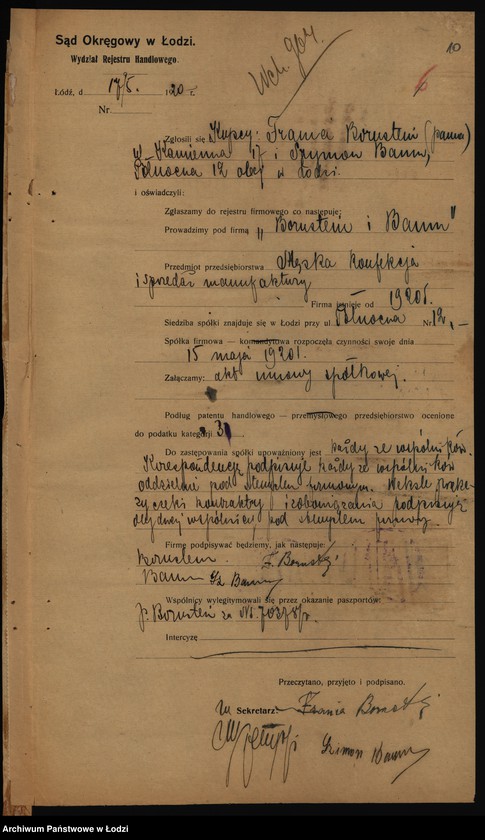 10
Sąd Okręgowy w Łodzi.
Wydział Rejestru Handlowego.
Wch. 904.
6
Łódź, d 17/5. 1920 r.
Nr
Zgłosili się Kupcy: Frania Bornstein (panna)
Kamienna 17 i Szymon Baum,
Północna 12 obaj w Łodzi.
i oświadczyli:
Zgłaszamy do rejestru firmowego co następuje:
Prowadzimy pod firmą „Bornstein i Baum"
Przedmiot przedsiębiorstwa Męska Konfekcja
i sprzedaż manufaktury
Firma istnieje od 1920 r.
Siedziba spółki znajduje się w Łodzi przy ul Północna Nr 12,—
Spółka firmowa — komandytowa rozpoczęła czynności swoje dnia
15 maja 1920 r.
Załączamy: akt umowy spółkowej.
Podług patentu handlowego — przemysłowego przedsiębiorstwo ocenione
do podatku kategorji 3
Do zastępowania spółki upoważniony jest każdy ze wspólników.
Korespondencję podpisuje każdy ze wspólników
oddzielnie pod stemplem firmowym. Weksle, prze-
kontrakty i zobowiązania podpisują
wspólnicy pod stemplem firmowym.
Firmę podpisywać będziemy, jak następuje:
Bornstein F. Bornstein
Baum Sz Baum
Wspólnicy wylegitymowali się przez okazanie paszportów:
F. Bornstein za Nr.
Intercyzę
Przeczytano, przyjęto i podpisano.
Sekretarz: Frania Bornstein
Szimon Baum
Archiwum Państwowe w Łodzi